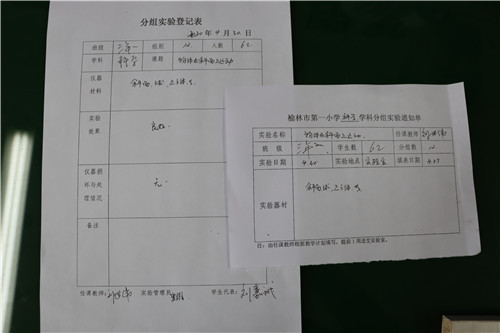 分组实验登记表
2020年4月30日
班级 三年一 组别 12 人数 62
学科 科学 课题 物体在斜面上运动
仪器材料
实验效果 良好
仪器损坏与处理情况 无
备注
任课教师: 实验管理员: 学生代表:
榆林市第一小学科学学科分组实验通知单
实验名称 物体在斜面上运动 任课教师
班级 三年二 学生数 62 分组数 12
实验日期 4.30 实验地点 实验室 填表日期 4.27
实验器材
注:由任课教师根据教学计划填写,提前1周送交实验室。